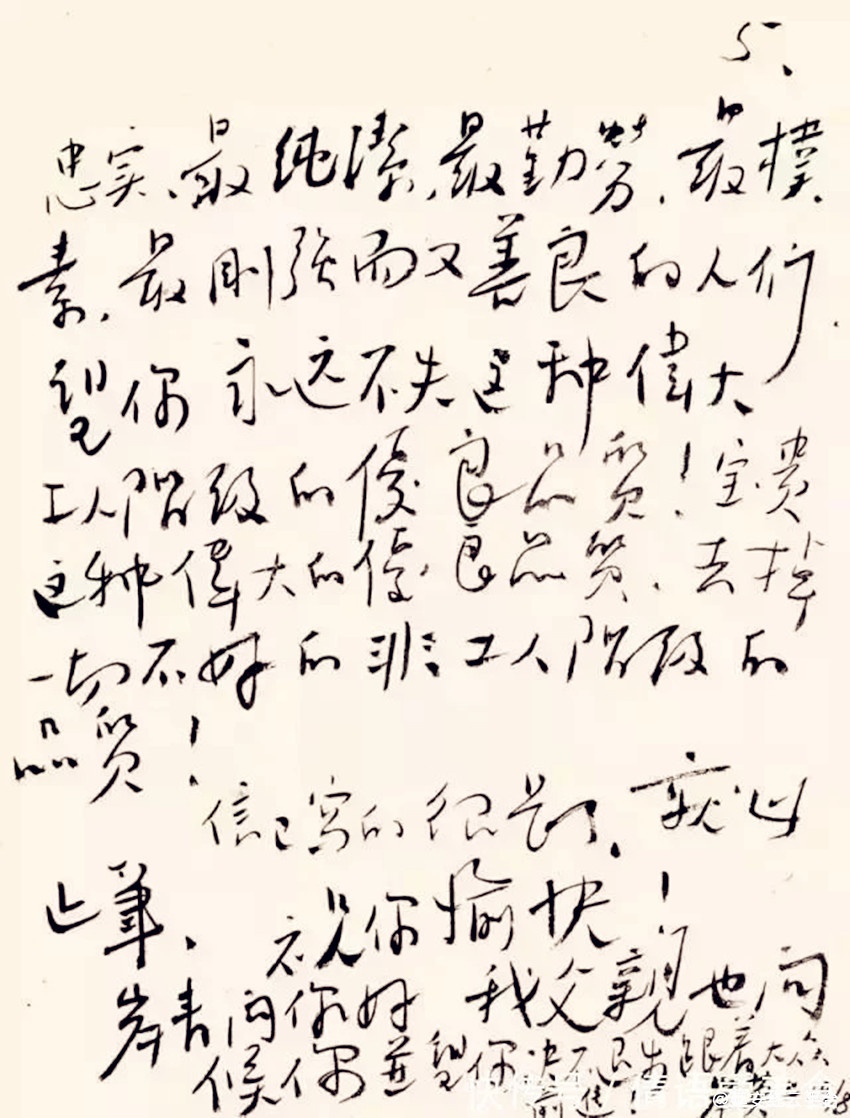 5、
忠实、最纯潔、最勤劳、最樸
素、最刚强而又善良的人们
望你永远不失这种偉大
工人阶级的優良品质！宝贵
这种偉大的優良品质、去掉
一切不好的非工人阶级的
品质！
信已写的很多了、就此
止筆、祝你愉快！
岸青问你好 我父親也问
候你並望你 跟着大众
前进！